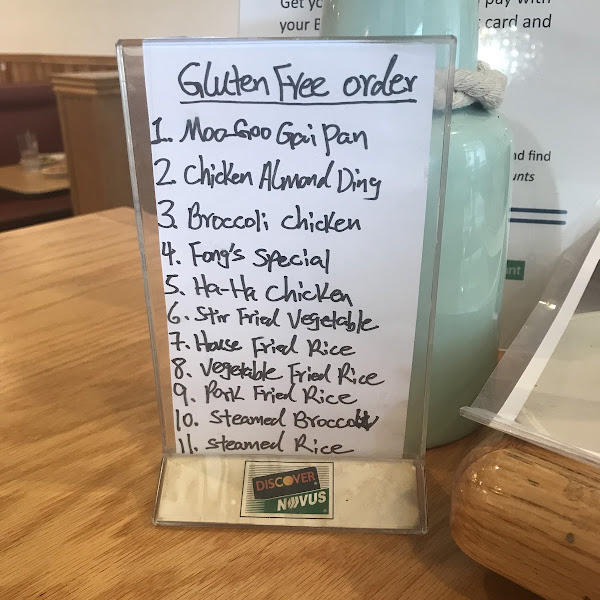 Get yo
pay with
your B
card and
Gluten Free order
1. Moo-Goo Gai Pan
2. Chicken Almond Ding
3. Broccoli chicken
4. Fong's Special
5. Ha-Ha Chicken
6. Stir Fried Vegetable
7. House Fried Rice
8. Vegetable Fried Rice
9. Pork Fried Rice
10. Steamed Broccoli
11. Steamed Rice
nd find
unts
ant
DISCOVER
NOVUS